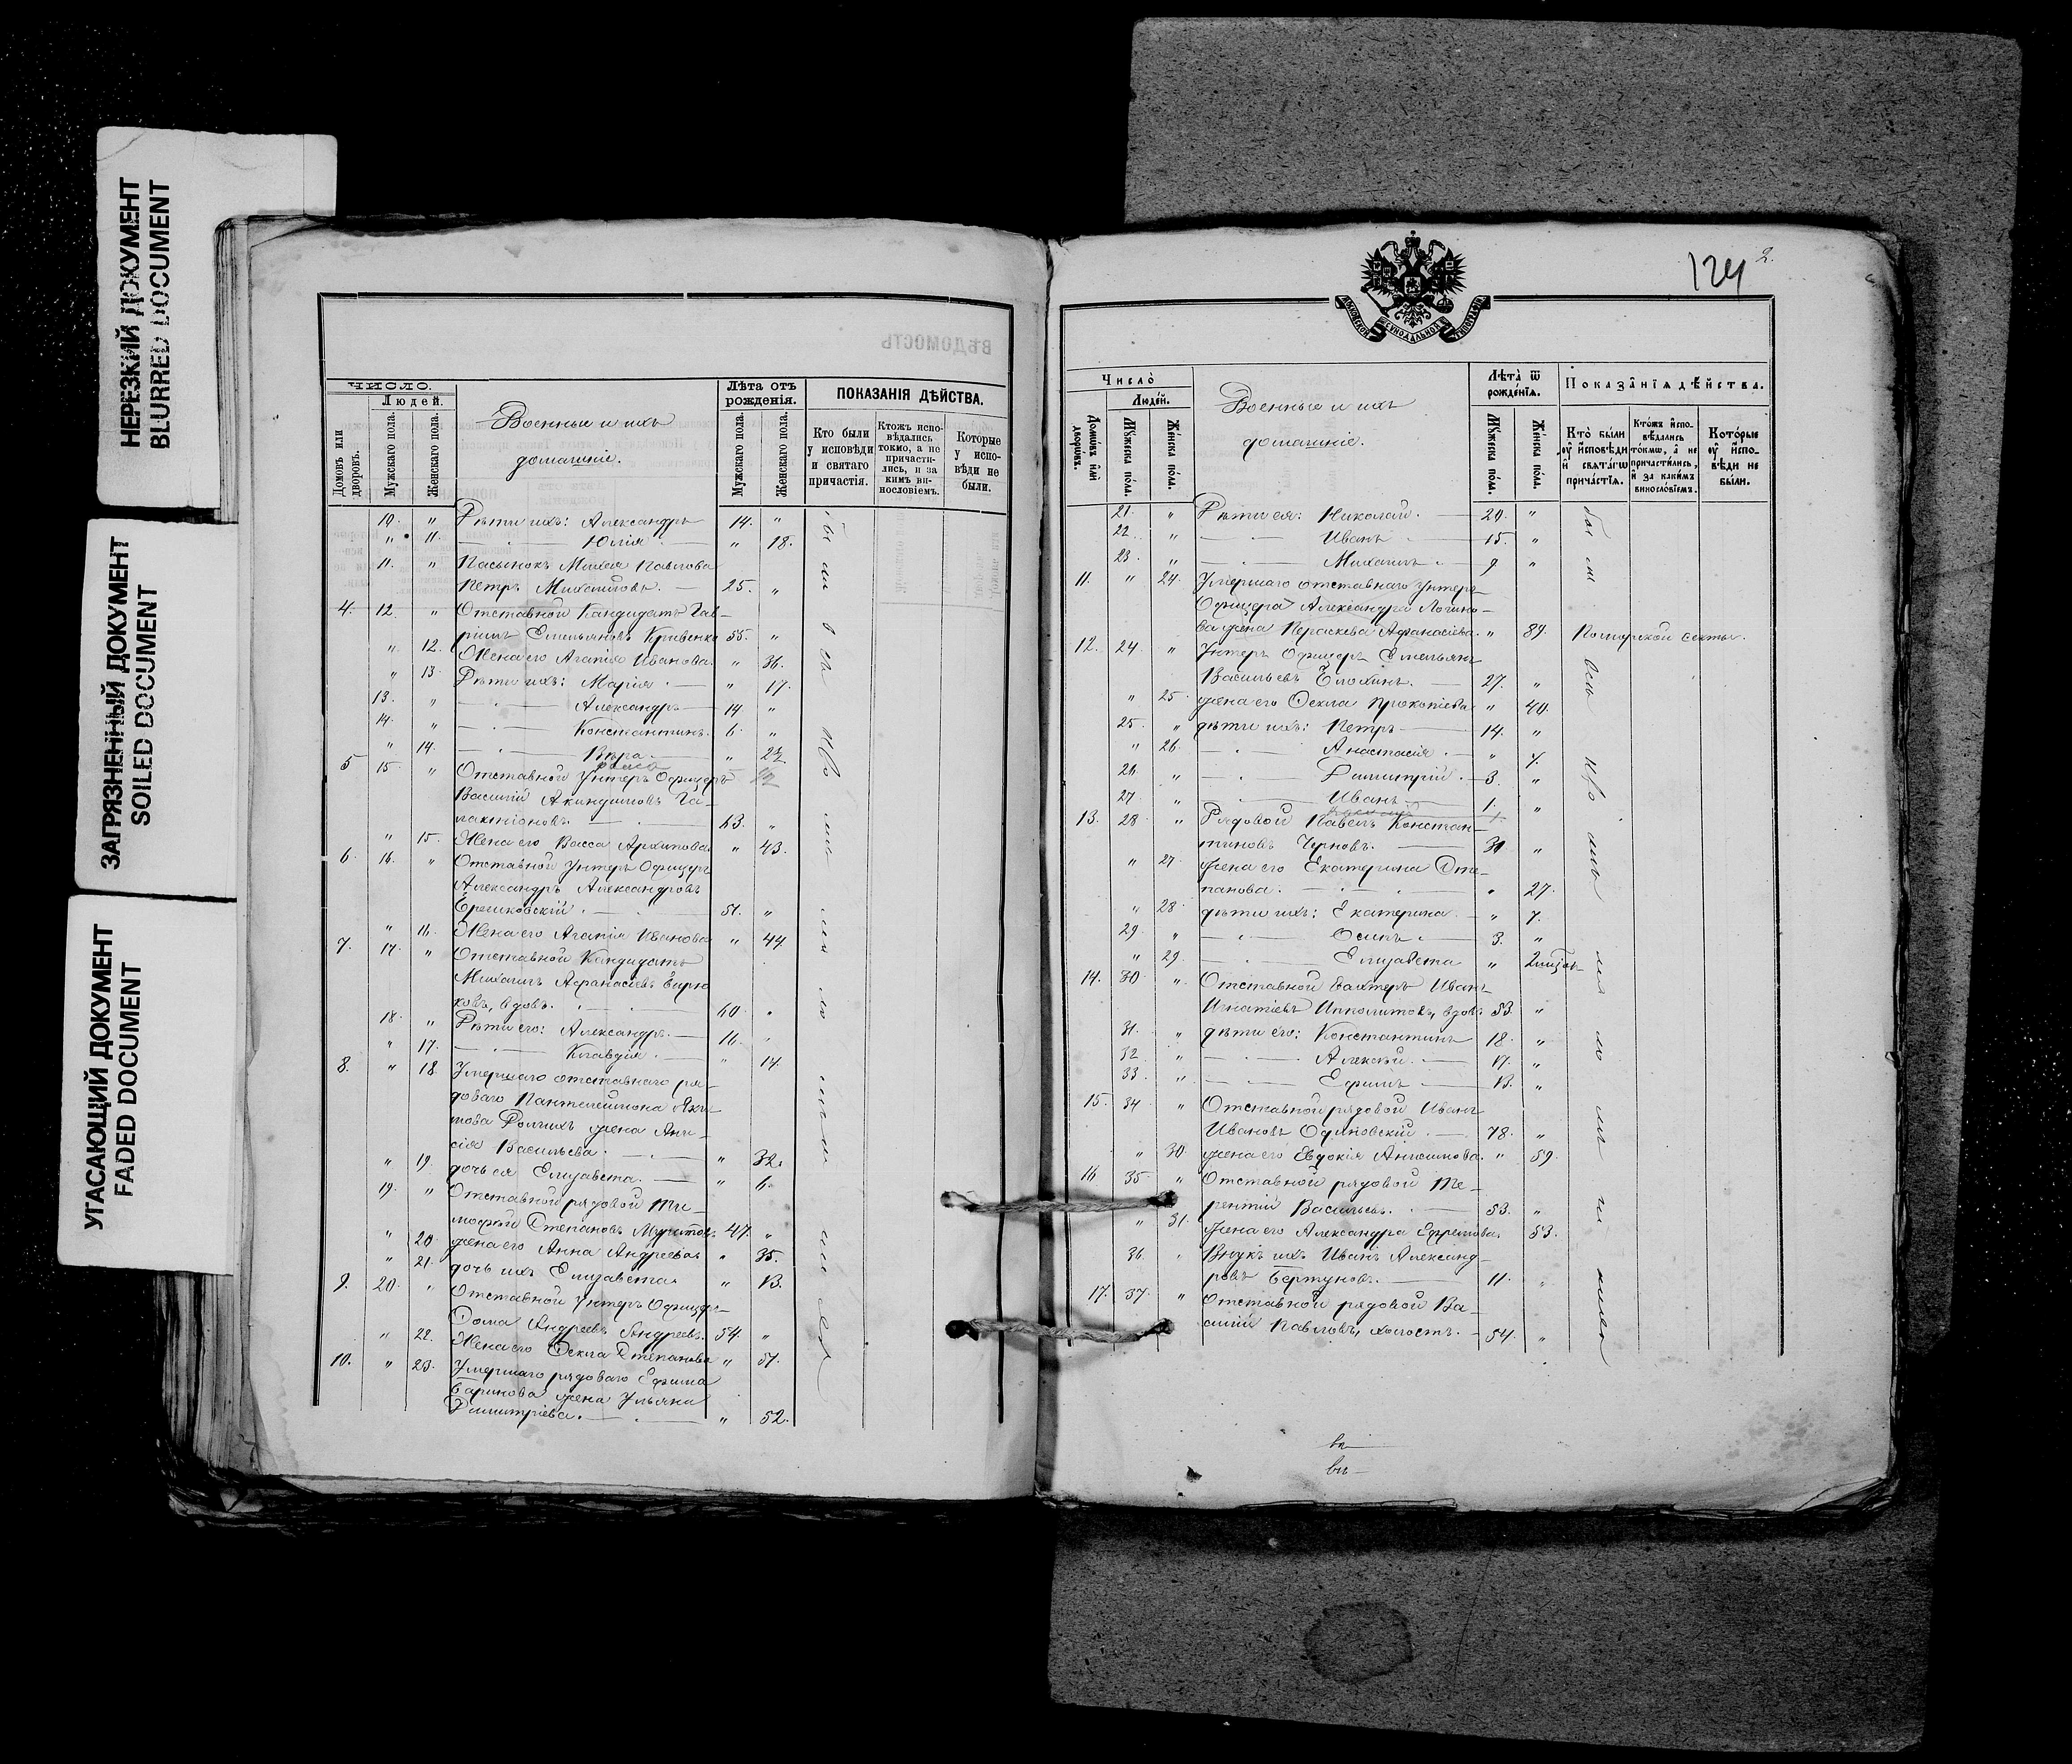 НЕРЕЗКИЙ ДОКУМЕНТ
BLURRED DOCUMENT
ЗАГРЯЗНЕННЫЙ ДОКУМЕНТ
SOILED DOCUMENT
УГАСАЮЩИЙ ДОКУМЕНТ
FADED DOCUMENT
ЧИСЛО.
Людей.
Домовъ или дворовъ.
Мужскаго пола.
Женскаго пола.
Военные и ихъ
домашніе.
Лѣта отъ рожденія.
Мужскаго пола.
Женскаго пола.
ПОКАЗАНІЯ ДѢЙСТВА.
Кто были у исповѣди и святаго причастія.
Ктожъ исповѣдались токмо, а не причастились, и за какимъ винословіемъ.
Которые у исповѣди не были.
10. " Дѣти ихъ: Александръ 14. "
" 11. Юлія " 18.
11. " Пасынокъ Михея Павлова
Петръ Михайловъ. 25. "
4. 12 " Отставной Кандидатъ Гав-
риилъ Емельяновъ Кривенко 55. "
" 12. Жена его Агапія Иванова " 36.
" 13. Дѣти ихъ: Марія " 17.
13. " Александръ 14. "
14. " Константинъ 6. "
" 14. Вѣра "
5 15. " Отставной Унтеръ Офицеръ
Василій Акиндиновъ Га-
лактіоновъ. 43. "
" 15. Жена его Васса Архипова " 43.
6. 16. " Отставной Унтеръ Офицеръ
Александръ Александровъ
51. "
" 16. Жена его Агапія Иванова " 44.
7. 17. " Отставной Кандидатъ
Михаилъ Афанасіевъ Бирю-
ковъ, вдовъ. 40. "
18. " Дѣти его: Александръ. 16.
" 17. Клавдія " 14.
8. " 18. Умершаго отставнаго ря-
доваго Пантелеймона
жена Ани-
сія Васильева. " 32.
" 19. дочь ея Елизавета. " 6.
19. " Отставной рядовой Ти-
мофей Степановъ 47. "
" 20. жена его Анна Андреева " 35.
" 21. дочь ихъ Елизавета " 13.
9. 20. " Отставной Унтеръ Офицеръ
Ѳома Андреевъ Андреевъ. 54. "
" 22. Жена его Ѳекла Степанова " 51.
10. " 23. Умершаго рядоваго Ефима
Баринова жена Ульяна
Димитріева. " 52.
124
2.
СѴНОДАЛЬНОЙ
Число̀
Людей.
Домѡвъ или дворѡвъ.
Мꙋжеска пола.
Женска пола.
Военные и ихъ
домашніе.
Лѣта ѿ рожденїѧ.
Мꙋжеска пола.
Женска пола.
Показанїѧ дѣйства.
Кто были ᲂу исповѣди и свѧтагѡ причастїѧ.
Ктожъ исповѣдались токмѡ, а не причастились, и за какимъ винословїемъ.
Которые ᲂу исповѣди не были.
21. " Дѣти ея: Николай. 20. "
22. " Иванъ 15. "
23. " Михаилъ 9 "
11. " 24. Умершаго отставнаго Унтеръ
Офицера Александра Логино-
ва жена Параскева Афанасіева. " 89. Поморской секты.
12. 24. " Унтеръ Офицеръ Емельянъ
Васильевъ Блохинъ. 27. "
" 25. жена его Ѳекла Прокопіева " 40.
25. " дѣти ихъ: Петръ 14. "
" 26. Анастасія " 7.
26. " Димитрій. 3. "
27. " Иванъ 1. "
13. 28. " Рядовой Павелъ Констан-
тиновъ Черновъ. 31 "
" 27. жена его Екатерина Сте-
панова. " 27.
" 28. дѣти ихъ: Екатерина. " 7.
29. " Осипъ 3. "
" 29. Елизавета "
14. 30. " Отставной Вахтеръ Иванъ
Игнатіевъ Ипполитовъ, вдовъ 53. "
31. " дѣти его: Константинъ 18. "
32. " Алексѣй. 17. "
33. " Ефимъ 13. "
15. 34. " Отставной рядовой Иванъ
Ивановъ 78. "
" 30. жена его Евдокія Анисимова. " 59.
16 35. " Отставной рядовой Те-
рентій Васильевъ. 53. "
" 31. Жена его Александра Ефремова. 53.
36. " Внукъ ихъ Иванъ Александ-
ровъ 11. "
17. 37. " Отставной рядовой Ва-
силій Павловъ, холостъ. 54. "